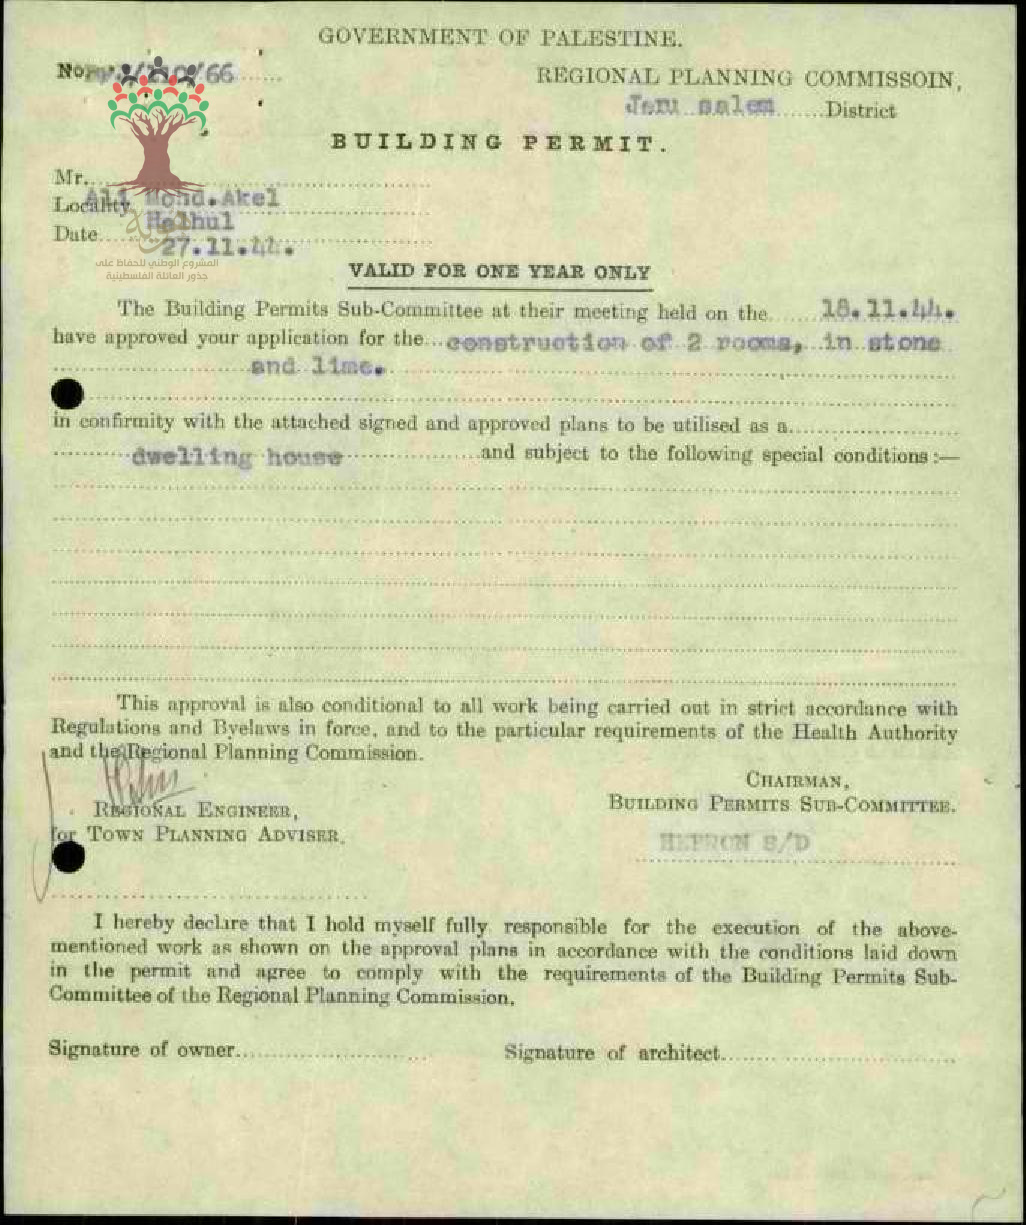 GOVERNMENT OF PALESTINE.
No. /66
REGIONAL PLANNING COMMISSOIN,
Jeru salem District
BUILDING PERMIT.
Mr.
Ali Mohd.Akel
Locality
Halhul
Date
27.11.44.
المشروع الوطني للحفاظ على
جذور العائلة الفلسطينية
VALID FOR ONE YEAR ONLY
The Building Permits Sub-Committee at their meeting held on the 18.11.44.
have approved your application for the construction of 2 rooms, in stone
and lime.
in confirmity with the attached signed and approved plans to be utilised as a
dwelling house and subject to the following special conditions :—
This approval is also conditional to all work being carried out in strict accordance with
Regulations and Byelaws in force, and to the particular requirements of the Health Authority
and the Regional Planning Commission.
CHAIRMAN,
BUILDING PERMITS SUB-COMMITTEE.
REGIONAL ENGINEER,
for TOWN PLANNING ADVISER.
HEBRON S/D
I hereby declare that I hold myself fully responsible for the execution of the above-
mentioned work as shown on the approval plans in accordance with the conditions laid down
in the permit and agree to comply with the requirements of the Building Permits Sub-
Committee of the Regional Planning Commission.
Signature of owner
Signature of architect